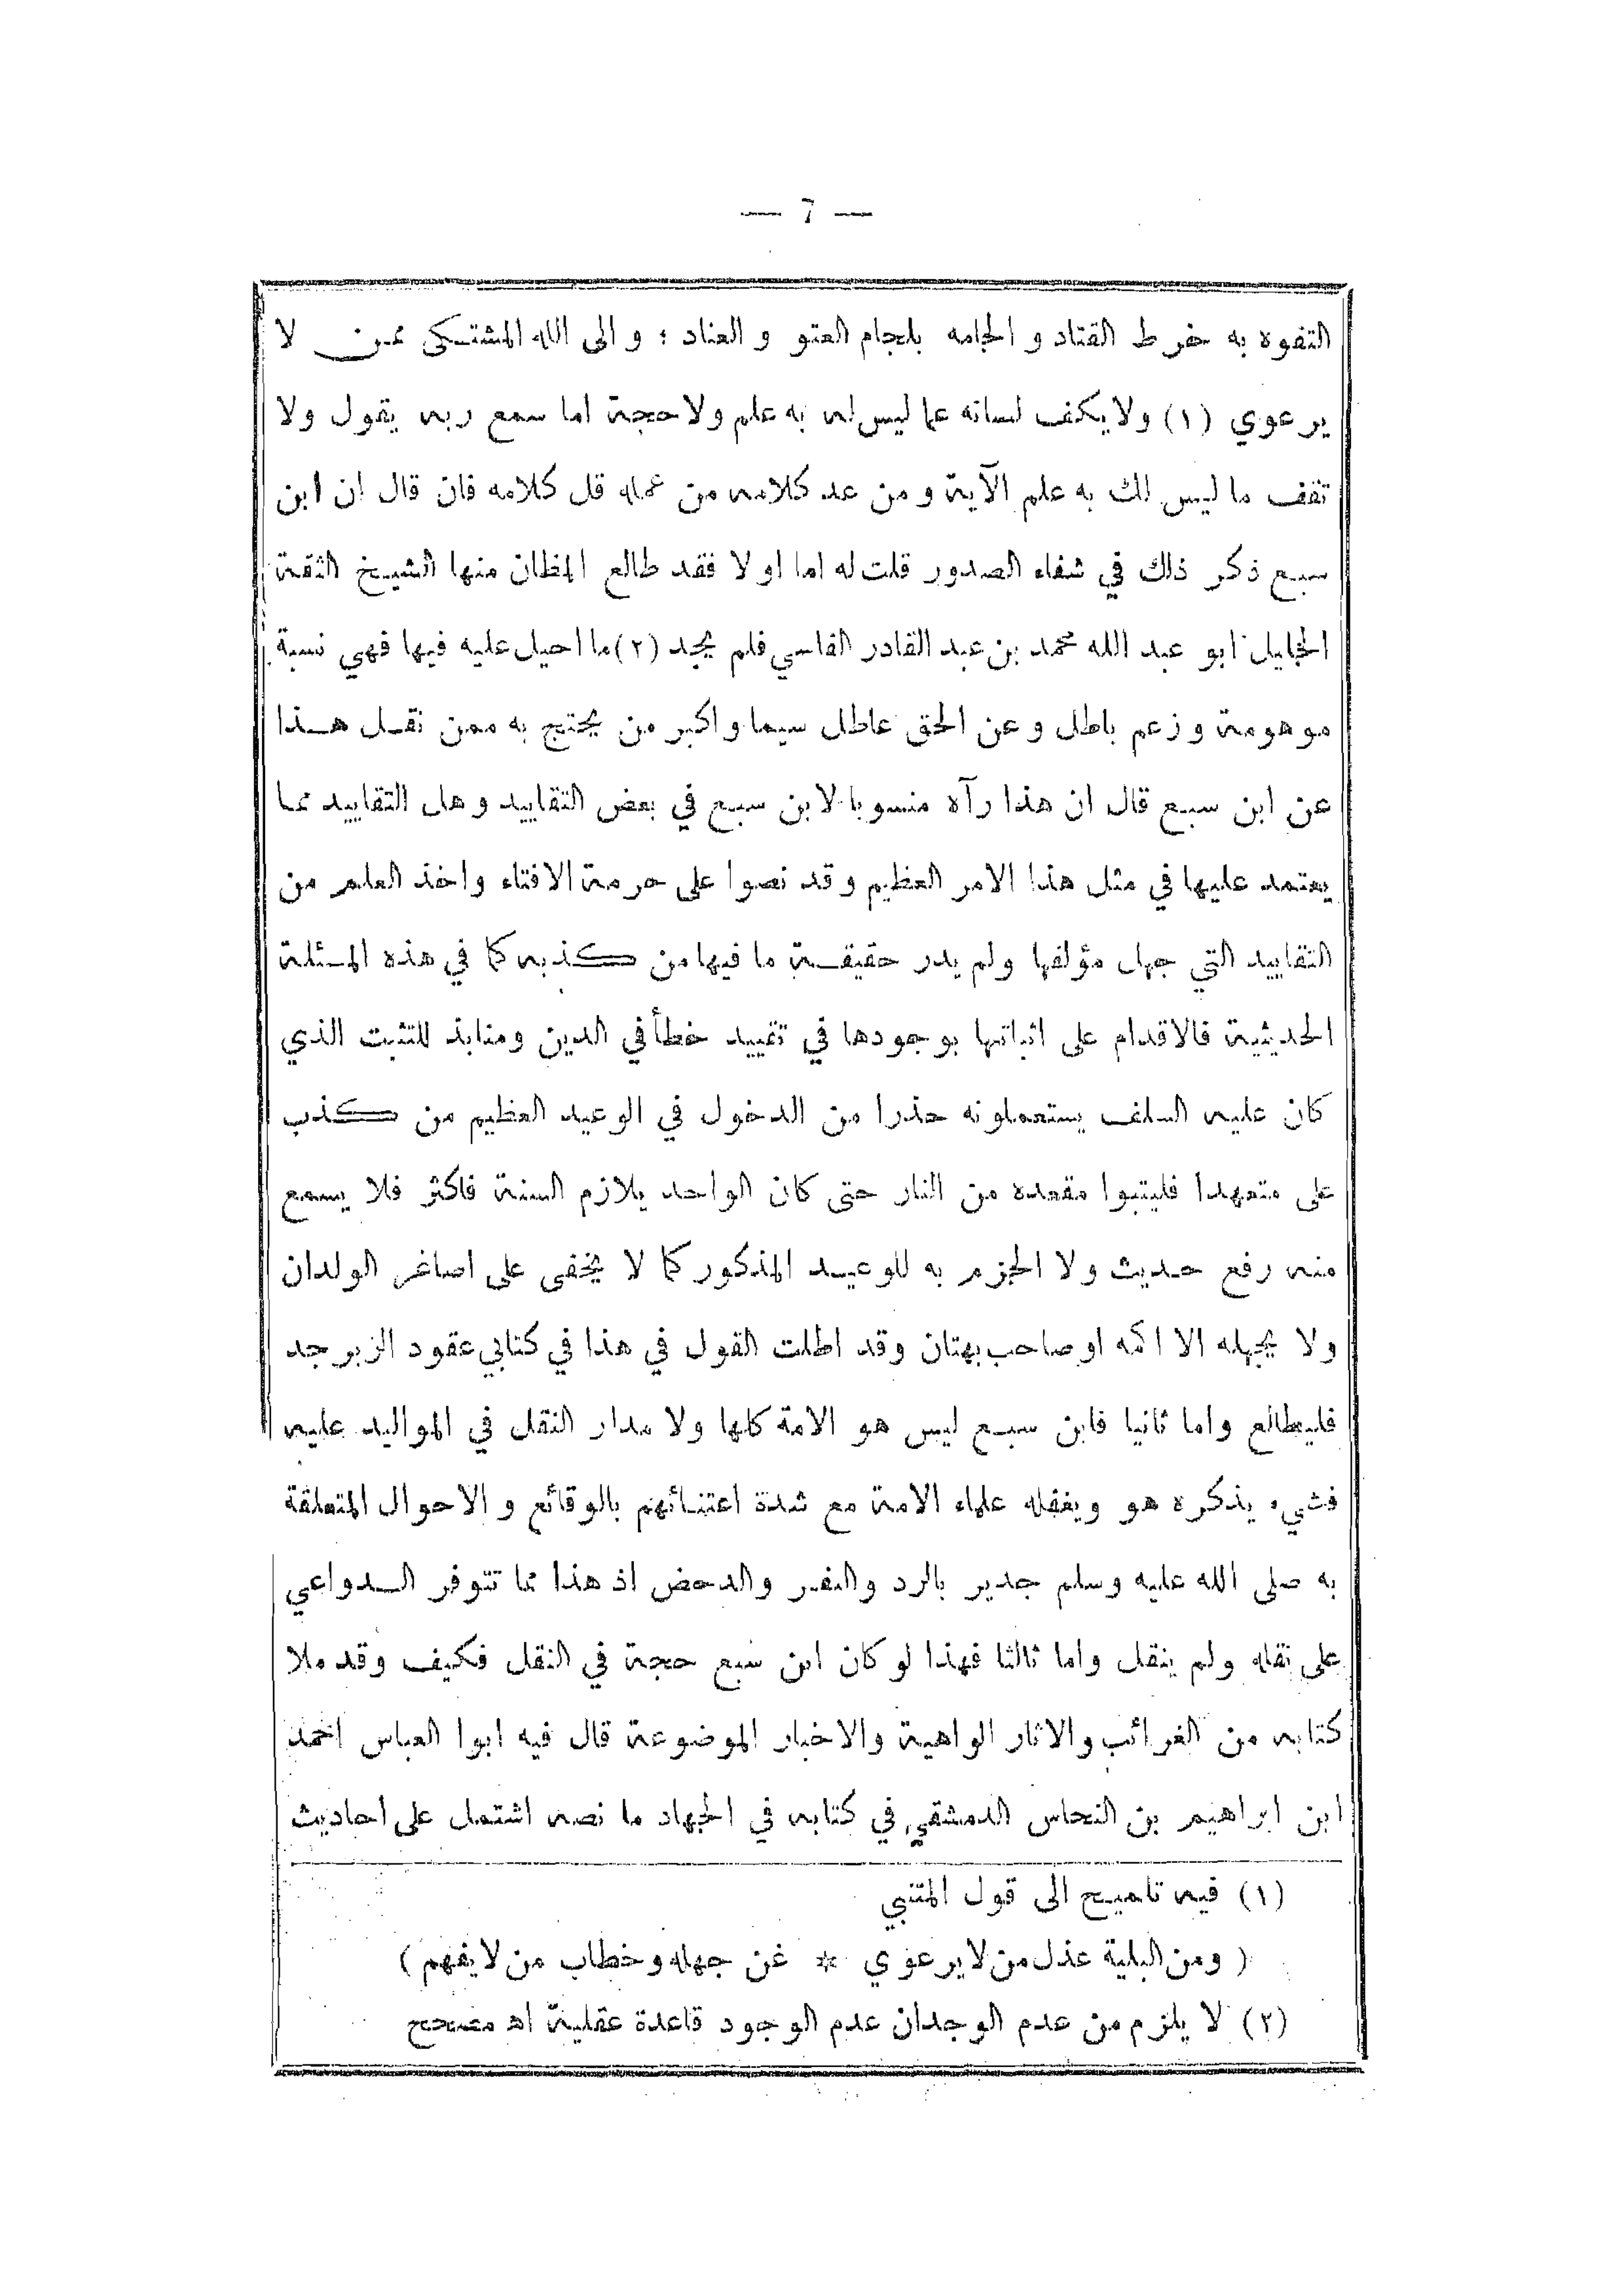 — 7 —
التفوه به خرط القتاد والجامه بلجام العتو والعناد ؛ والى الله المشتكى ممن لا
يرعوي (١) ولا يكف لسانه عما ليس له به علم ولا حجة اما سمع ربه يقول ولا
تقف ما ليس لك به علم الآية ومن عد كلامه من عمله قل كلامه فان قال ان ابن
سبع ذكر ذلك في شفاء الصدور قلت له اما اولا فقد طالع المظان منها الشيخ الثقة
الجليل ابو عبد الله محمد بن عبد القادر الفاسي فلم يجد (٢) ما احيل عليه فيها فهي نسبة
موهومة وزعم باطل وعن الحق عاطل سيما واكبر من يحتج به ممن نقل هذا
عن ابن سبع قال ان هذا رآه منسوبا لابن سبع في بعض التقاييد وهل التقاييد مما
يعتمد عليها في مثل هذا الامر العظيم وقد نصوا على حرمة الافتاء واخذ العلم من
التقاييد التي جهل مؤلفها ولم يدر حقيقة ما فيها من كذبه كما في هذه المسئلة
الحديثية فالاقدام على اثباتها بوجودها في تقييد خطأ في الدين ومنابذ للتثبت الذي
كان عليه السلف يستعملونه حذرا من الدخول في الوعيد العظيم من كذب
على متعمدا فليتبوا مقعده من النار حتى كان الواحد يلازم السنة فاكثر فلا يسمع
منه رفع حديث ولا الجزم به للوعيد المذكور كما لا يخفى على اصاغر الولدان
ولا يجهله الا اكمه او صاحب بهتان وقد اطلت القول في هذا في كتابي عقود الزبرجد
فليطالع واما ثانيا فابن سبع ليس هو الامة كلها ولا مدار النقل في المواليد عليه
فشيء يذكره هو ويغفله علماء الامة مع شدة اعتنائهم بالوقائع والاحوال المتعلقة
به صلى الله عليه وسلم جدير بالرد والنفر والدحض اذ هذا مما تتوفر الدواعي
على نقله ولم ينقل واما ثالثا فهذا لو كان ابن سبع حجة في النقل فكيف وقد ملا
كتابه من الغرائب والاثار الواهية والاخبار الموضوعة قال فيه ابوا العباس احمد
ابن ابراهيم بن النحاس الدمشقي في كتابه في الجهاد ما نصه اشتمل على احاديث
(١) فيه تلميح الى قول المتنبي
( ومن البلية عذل من لا يرعوي * عن جهله وخطاب من لا يفهم )
(٢) لا يلزم من عدم الوجدان عدم الوجود قاعدة عقلية اه مصحح